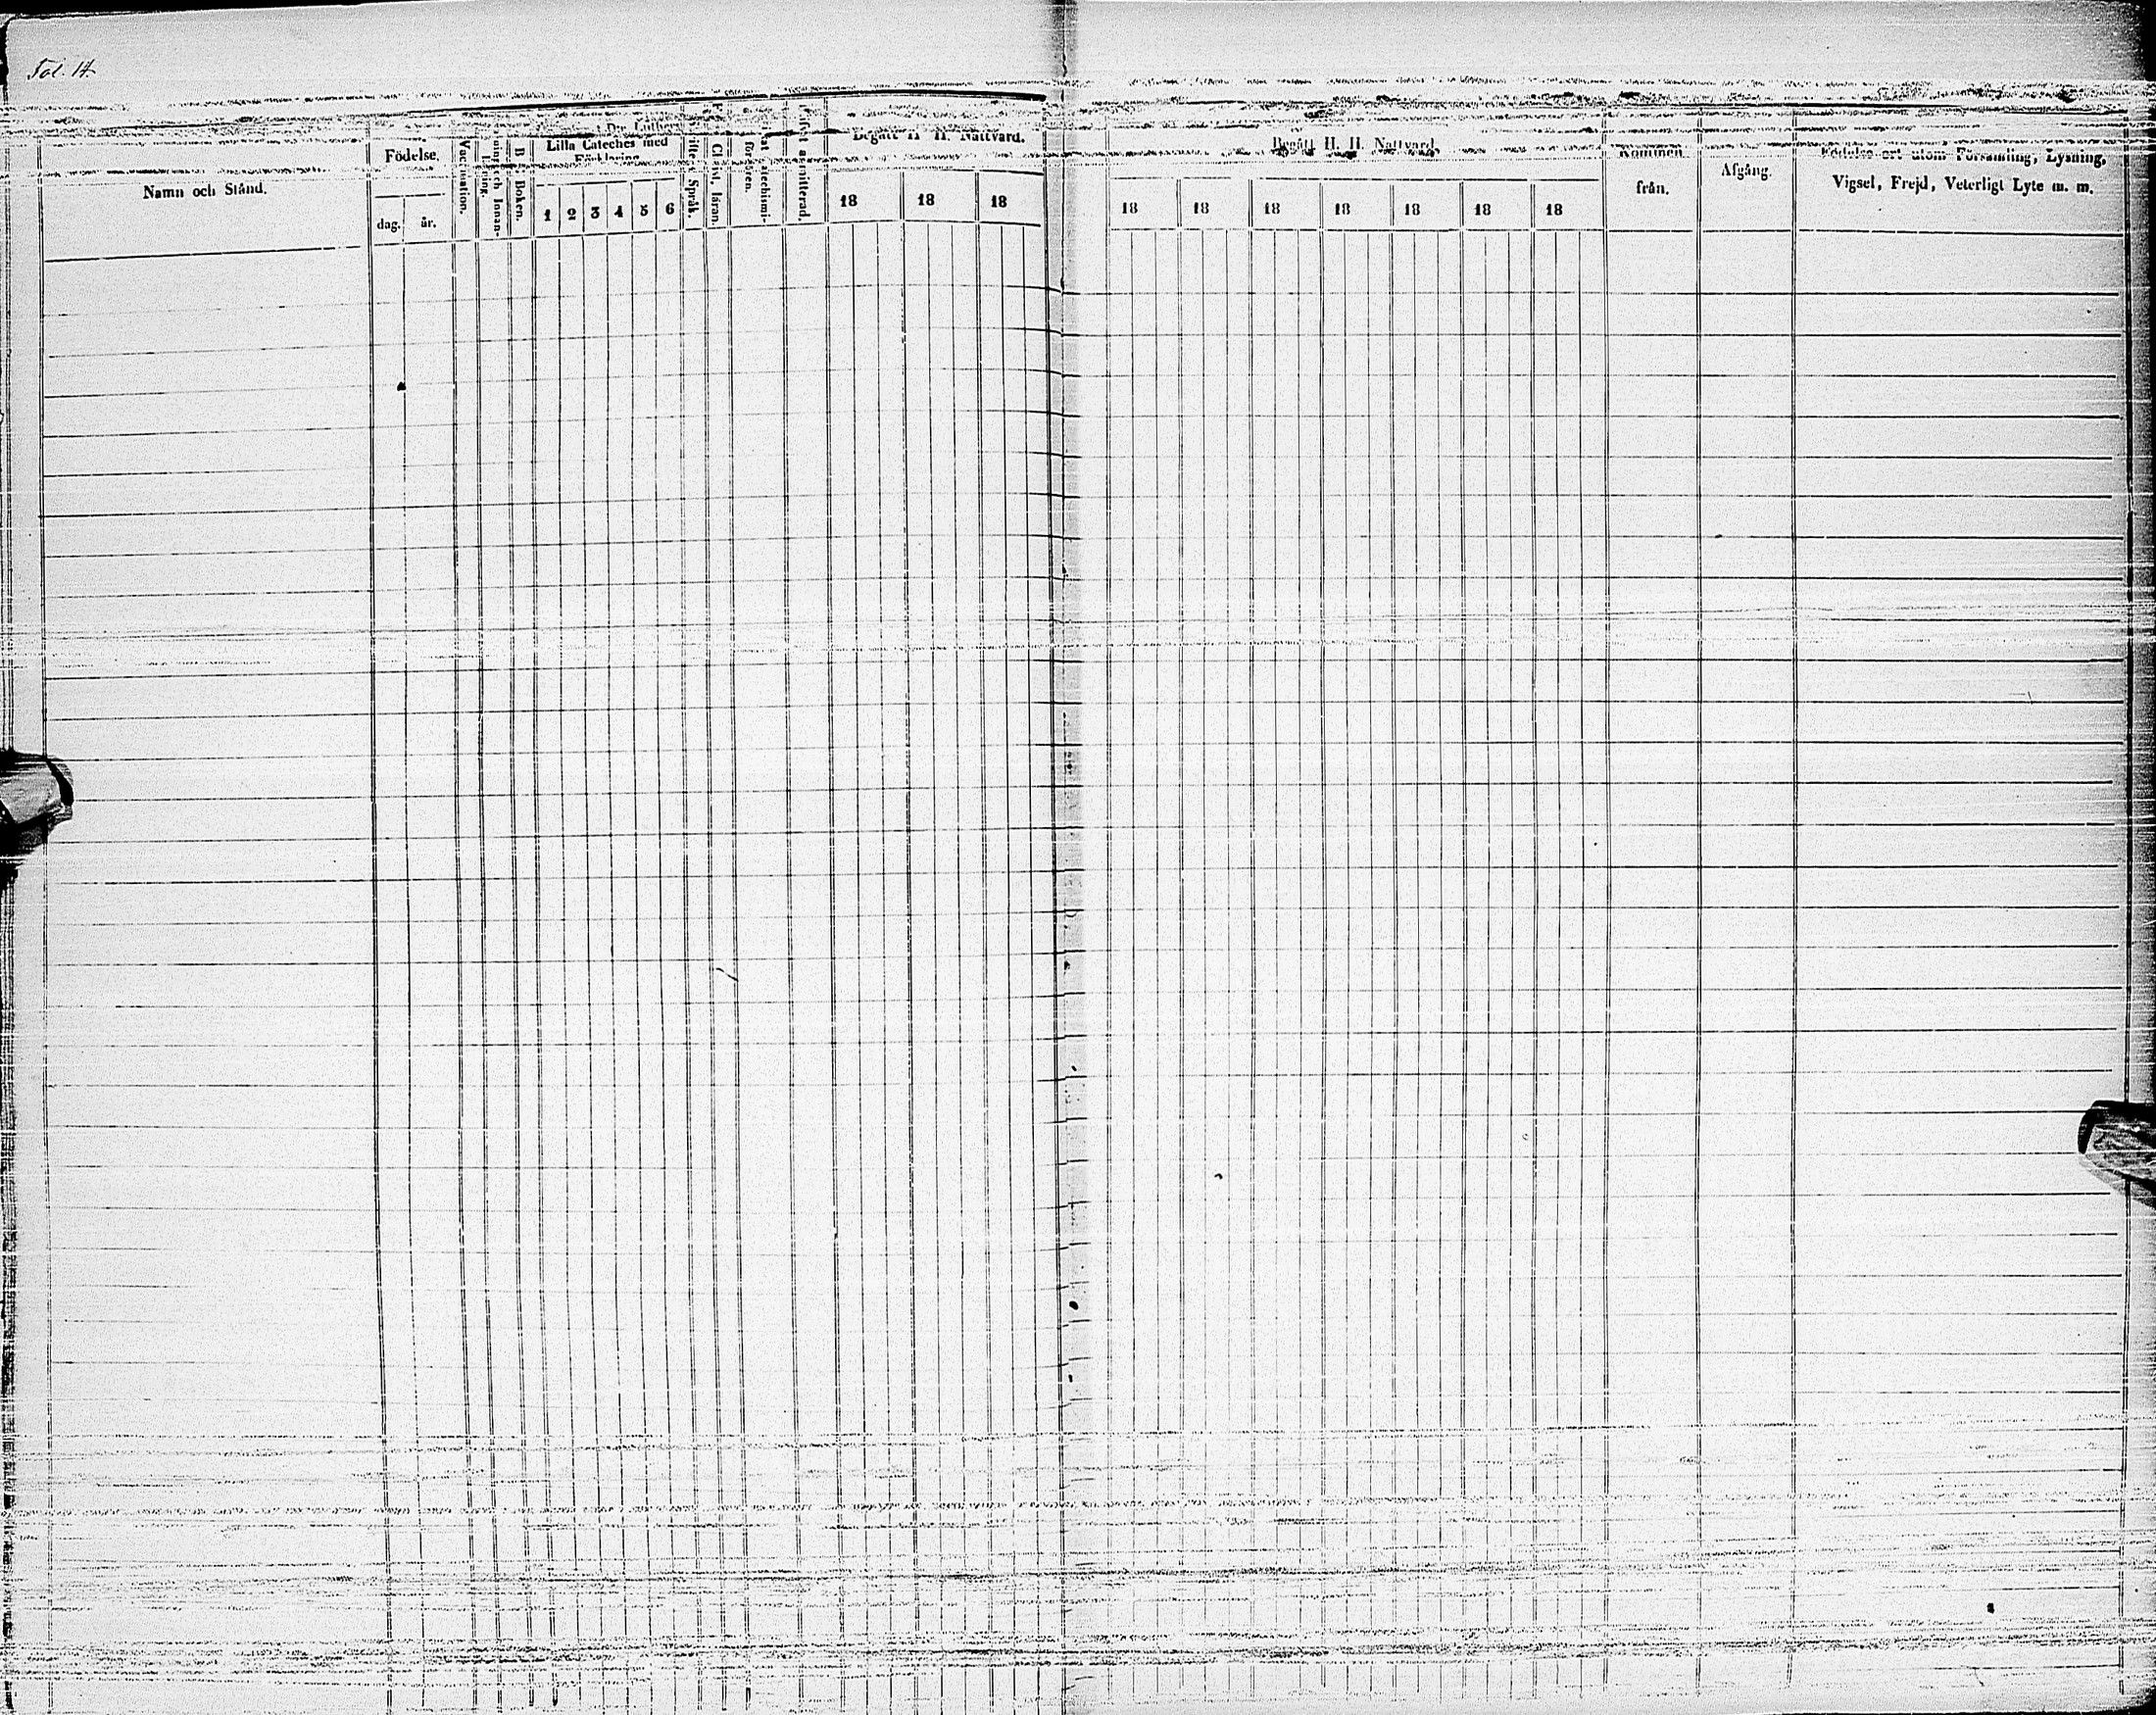 Fol. 14.
Namn och Stånd.
Födelse.
dag. år.
Vaccination.
Boken.
Lilla Cateches med
Förklaring
1 2 3 4 5 6
Språk.
läran.
Begått H. H. Nattvard.
18 18 18
Begått H. H. Nattvard.
18 18 18 18 18 18 18
Kommen
från.
Afgång.
Födelse-ort utom Församling, Lysning,
Vigsel, Frejd, Veterligt Lyte m. m.